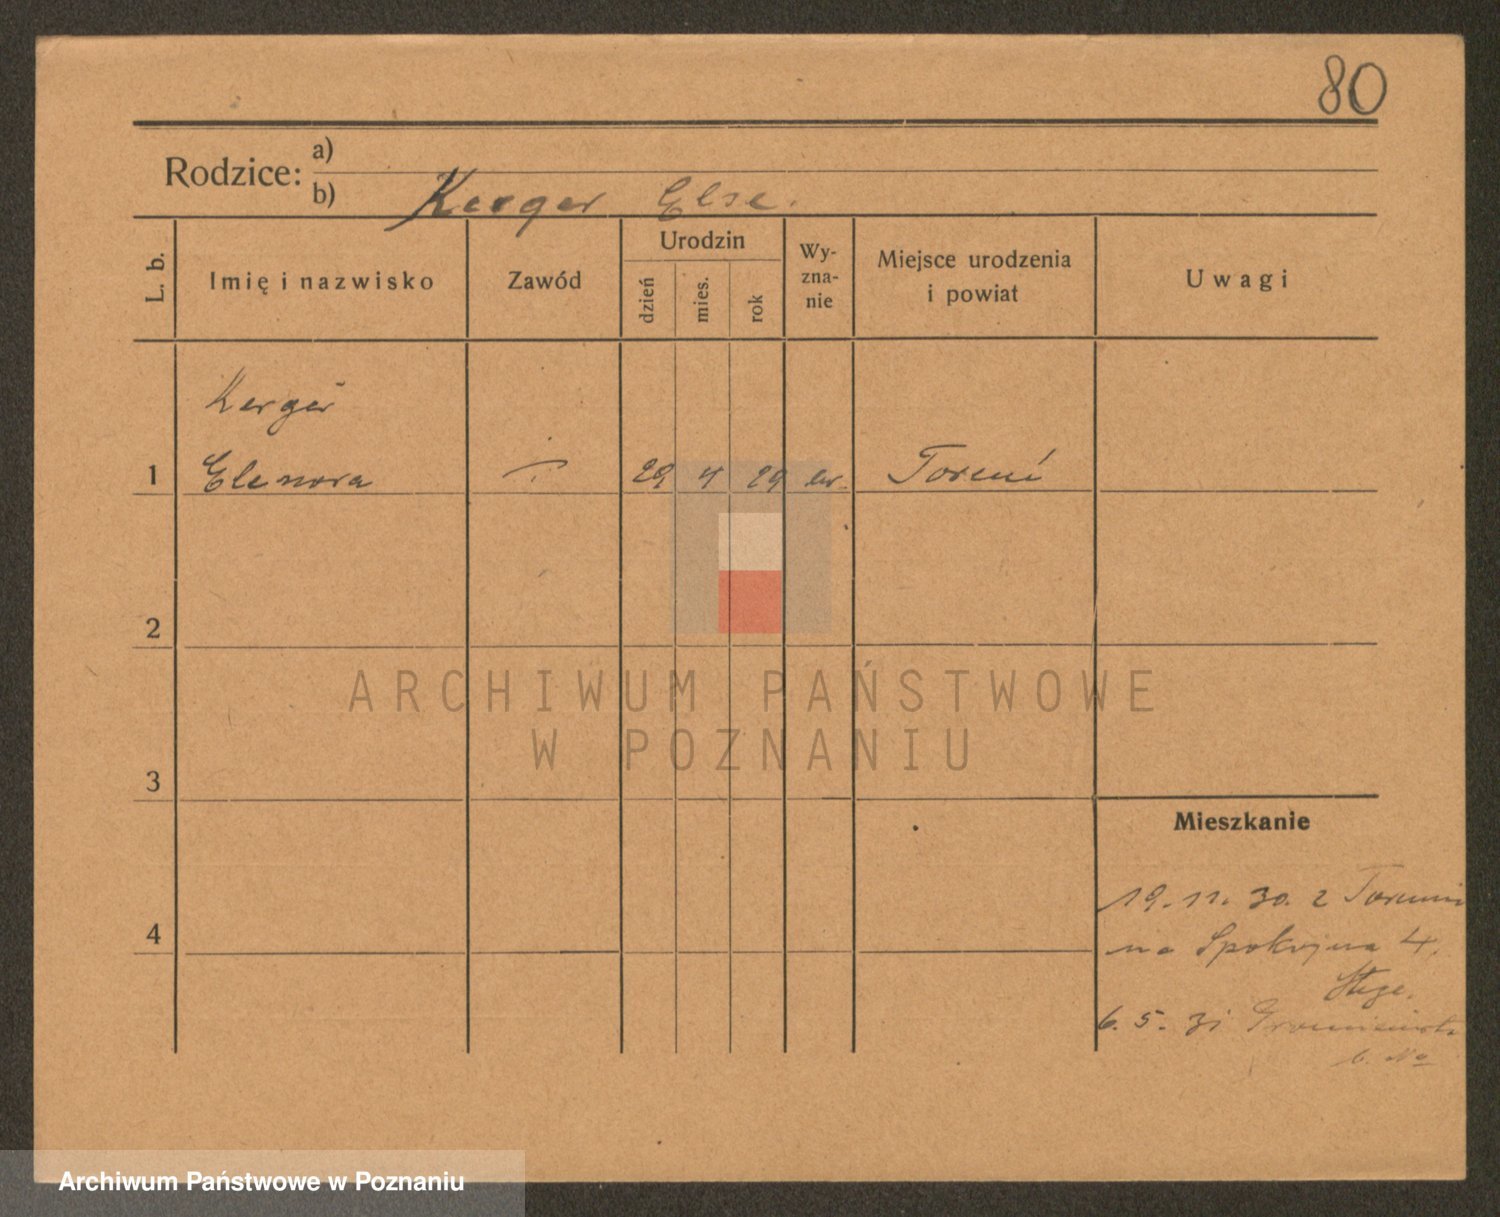 80
Rodzice: a)
b) Kerger Else.
L. b.
Imię i nazwisko
Zawód
Urodzin
dzień
mies.
rok
Wy-
zna-
nie
Miejsce urodzenia
i powiat
Uwagi
Kerger
1 Elenora 29 4 29 ew. Toruń
2
3
4
Mieszkanie
19. 11. 30. z Torunia
na Spokojna 4.
6. 5. 31
b. No
ARCHIWUM PAŃSTWOWE
W POZNANIU
Archiwum Państwowe w Poznaniu